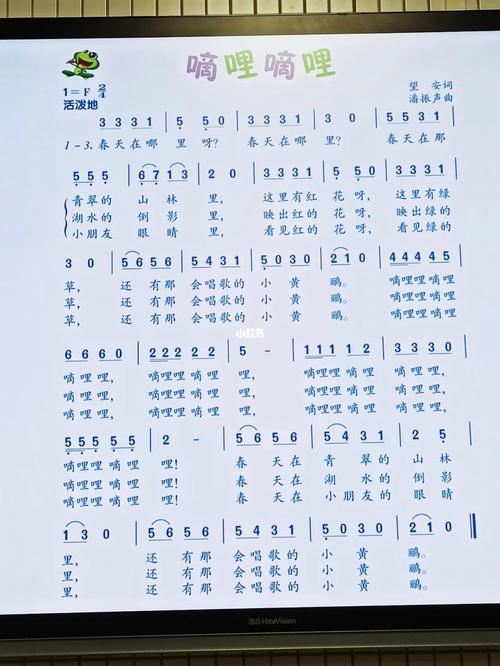 嘀哩嘀哩
1=F 2/4
活泼地
望安词
潘振声曲
3 3 3 1 | 5 5 0 | 3 3 3 1 | 3 0 | 5 5 3 1 |
1-3.春天在哪 里呀? 春天在哪 里? 春天在那
5 5 5 | 6 7 1 3 | 2 0 | 3 3 3 1 | 5 5 0 | 3 3 3 1 |
青翠的 山林 里, 这里有红 花呀, 这里有绿
湖水的 倒影 里, 映出红的 花呀, 映出绿的
小朋友 眼睛 里, 看见红的 花呀, 看见绿的
3 0 | 5 6 5 6 | 5 4 3 1 | 5 0 3 0 | 2 1 0 | 4 4 4 4 5 |
草, 还有那 会唱歌的 小黄 鹂。 嘀哩哩嘀哩
草, 还有那 会唱歌的 小黄 鹂。 嘀哩哩嘀哩
草, 还有那 会唱歌的 小黄 鹂。 嘀哩哩嘀哩
6 6 6 0 | 2 2 2 2 2 | 5 - | 1 1 1 1 2 | 3 3 3 0 |
嘀哩哩, 嘀哩哩嘀哩 哩, 嘀哩哩嘀哩 嘀哩哩,
嘀哩哩, 嘀哩哩嘀哩 哩, 嘀哩哩嘀哩 嘀哩哩,
嘀哩哩, 嘀哩哩嘀哩 哩, 嘀哩哩嘀哩 嘀哩哩,
5 5 5 5 5 | 2 - | 5 6 5 6 | 5 4 3 1 | 5 5 5 |
嘀哩哩嘀哩 哩! 春天在 青翠的 山林
嘀哩哩嘀哩 哩! 春天在 湖水的 倒影
嘀哩哩嘀哩 哩! 春天在 小朋友的 眼睛
1 3 0 | 5 6 5 6 | 5 4 3 1 | 5 0 3 0 | 2 1 0
里, 还有那 会唱歌的 小黄 鹂。
里, 还有那 会唱歌的 小黄 鹂。
里, 还有那 会唱歌的 小黄 鹂。
小红书
HiteVision